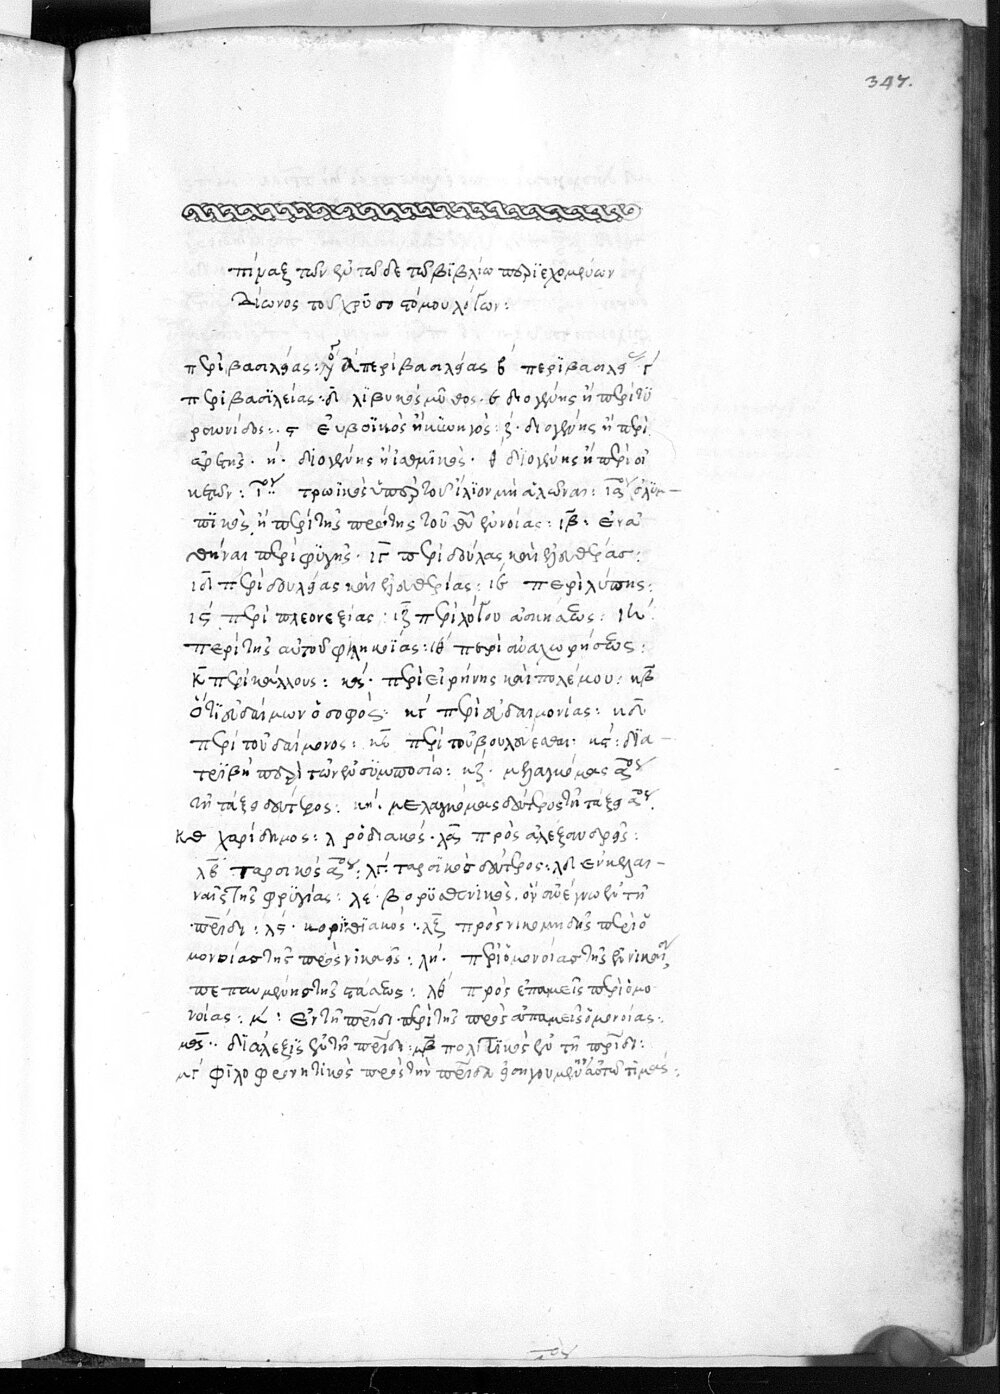 347.
πίναξ τῶν ἐν τῶδε τῶ βϊβλίω περϊεχομένων
Δίωνος τοῦ χρυσοστόμου λόγων:
περὶ βασιλείας: λόγος Α περὶ βασιλείας β περὶ βασιλείας γ
περὶ βασϊλείας: δ λϊβυκὸς μῦθος· ε διογένης ἢ περὶ τυ
ραννίδος: ϛ εὐβοϊκὸς ἢ κυνηγός: ζ· διογένης ἢ περὶ
ἀρετῆς· η· διογένης ἢ ἰσθμϊκός· θ διογένης ἢ περὶ οἰ
κετῶν: ι τρωϊκὸς ὑπὲρ τοῦ ἴλϊον μὴ ἁλῶναι: ια ὀλυμ-
πϊκὸς ἢ περὶ τῆς πρώτης τοῦ θεοῦ ἐννοίας: ιβ: ἐν ἀ
θήναις περὶ φυγῆς· ιγ περὶ δουλείας καὶ ἐλευθερίας:
ιδ περὶ δουλείας καὶ ἐλευθερίας: ιε περὶ λύπης:
ιϛ περὶ πλεονεξίας: ιζ περὶ λόγου ἀσκήσεως: ιη
περὶ τῆς αὐτοῦ φιληκοΐας: ιθ περὶ ἀναχωρήσεως:
κ περὶ κάλλους: κα· περὶ εἰρήνης καὶ πολέμου: κβ
ὅτι εὐδαίμων ὁ σοφός: κγ περὶ εὐδαιμονίας: κδ
περὶ τοῦ δαίμονος: κε περὶ τοῦ βουλεύεσθαι: κϛ: δϊα-
τρϊβὴ περὶ τῶν ἐν συμποσίω: κζ· μελαγκόμας αου
τῆ τάξει δεύτερος: κη· μελαγκόμας δεύτερος τῆ τάξει αου.
κθ χαρίδημος: λ ῥοδιακός· λα πρὸς ἀλεξανδρεῖς:
λβ ταρσικὸς αου: λγ· ταρσϊκὸς δεύτερος: λδ ἐν κελαι-
ναῖς τῆς φρυγίας: λε· βορυσθενϊκὸς, ὃν ἀνέγνω ἐν τῆ
πατρίδι: λϛ· κορϊνθϊακός· λζ πρὸς νικομηδεῖς περὶ ὁ
μονοίας τῆς πρὸς νικαεῖς: λη· περὶ ὁμονοίας τῆς ἐν νικαία,
πεπαυμένης τῆς στάσεως: λθ πρὸς ἀπαμεῖς περὶ ὁμο
νοίας: μ: ἐν τῆ πατρίδι περὶ τῆς πρὸς ἀπαμεῖς ὁμονοίας:
μα· διάλεξϊς ἐν τῆ πατρίδι: μβ πολϊτϊκὸς ἐν τῆ πατρίδι:
μγ φϊλοφρονητικὸς πρὸς τὴν πατρίδα εἰσηγουμένην αὐτῶ τιμάς: